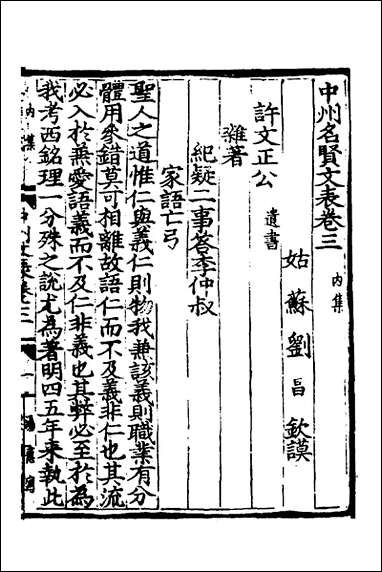 中州名賢文表卷三
內集
姑蘇劉昌欽謨
許文正公
遺書
雜著
紀疑二事答季仲叔
家語亡弓
聖人之道惟仁與義仁則物我兼該義則職業有分
體用參錯莫可相離故語仁而不及義非仁也其流
必入於兼愛語義而不及仁非義也其弊必至於為
我考西銘理一分殊之說尤為著明四五年來執此